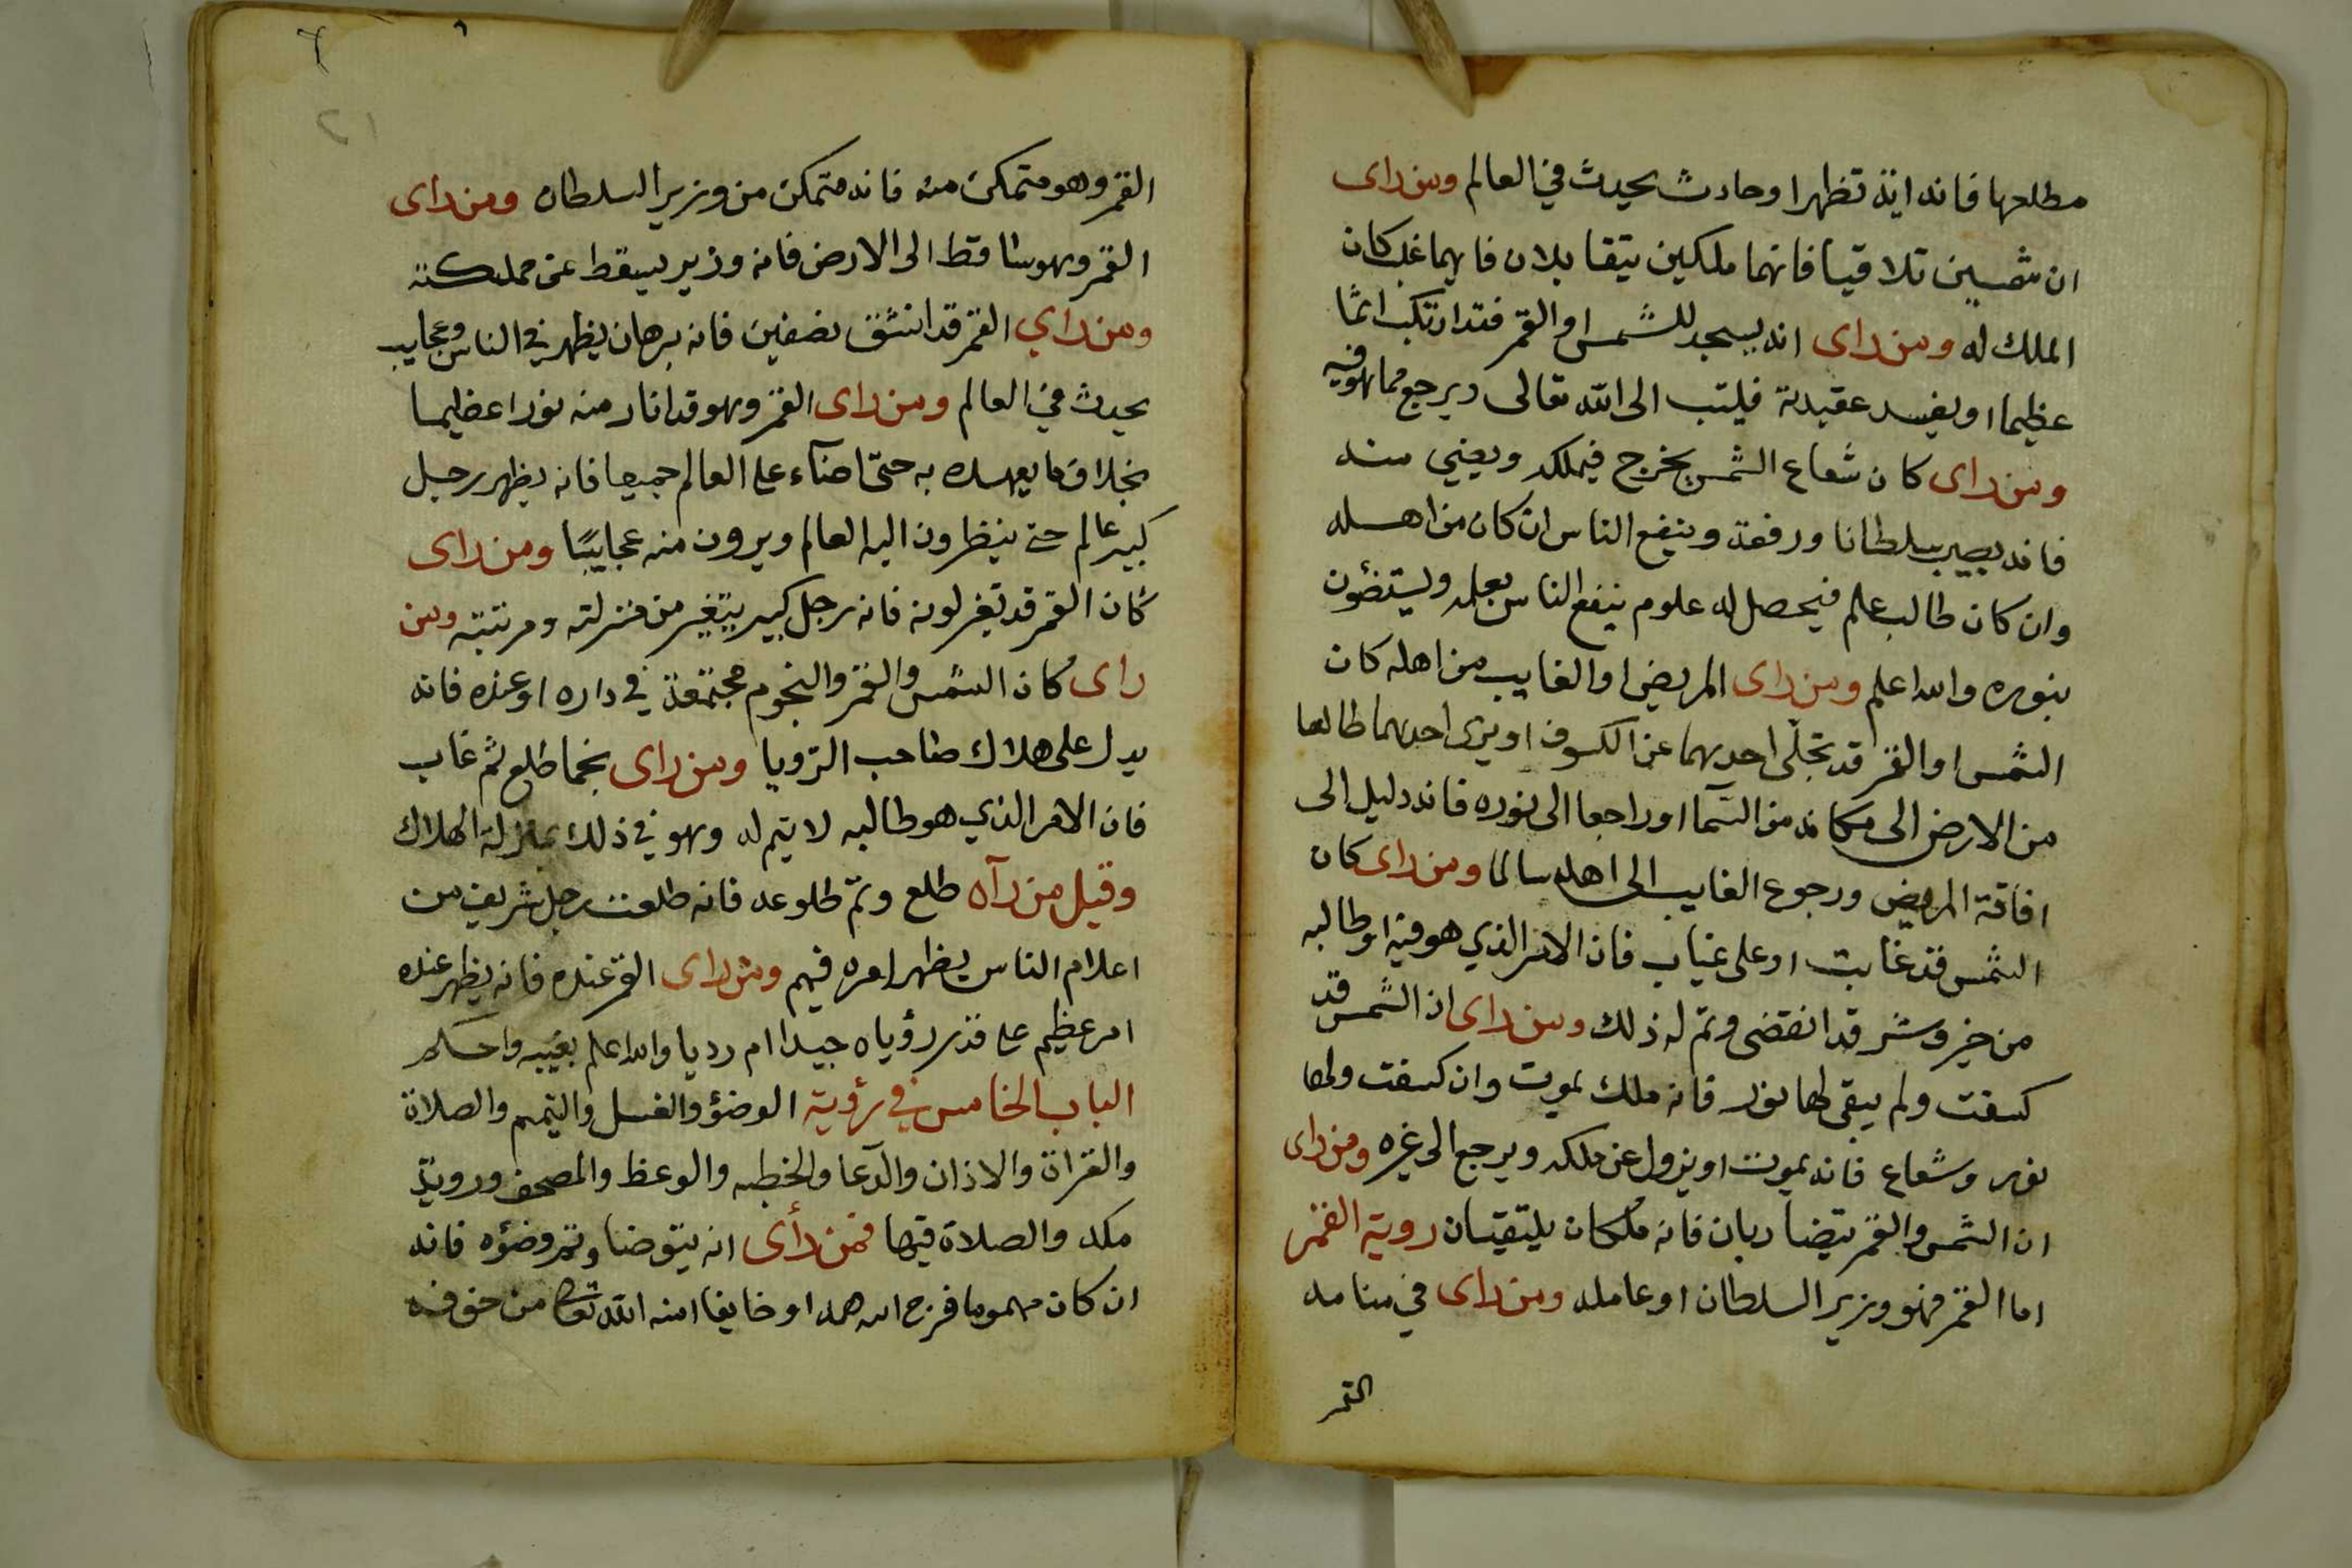 مطلعها فانه اية تظهر او حادث يحدث في العالم ومن راى
ان شمسين تلاقيا فانهما ملكين يتقابلان فايهما غلب كان
الملك له ومن راى انه يسجد للشمس او القمر فقد ارتكب اثما
عظيما او يفسد عقيدته فليتب الى الله تعالى ويرجع مما هو فيه
ومن راى كان شعاع الشمس يخرج فيملكه ويغني منه
فانه يصير سلطانا ورفعة وينفع الناس ان كان من اهله
وان كان طالب علم فيحصل له علوم ينفع الناس بعلمه ويستضؤن
بنوره والله اعلم ومن راى المريض او الغايب من اهله كان
الشمس او القمر قد تجلّى احديهما عن الكسوف او يرى احديهما طالعا
من الارض الى مكانه من السّما او راجعا الى نوره فانه دليل الى
افاقة المريض ورجوع الغايب الى اهله سالما ومن راى كان
الشمس قد غابت او على غياب فان الامر الذي هو فيه او طالبه
من خير وشر قد انقضى وتم له ذلك ومن راى ان الشمس قد
كسفت ولم يبقى لها نور فانه ملك يموت وان كسفت ولها
نور وشعاع فانه يموت او يزول عن ملكه ويرجع الى غيره ومن راى
ان الشمس والقمر يتضاربان فانه مُلكان يلتقيان روية القمر
اما القمر فهو وزير السلطان او عامله ومن راى في منامه
القمر
٢١
القمر وهو متمكن منه فانه متمكن من وزير السلطان ومن راى
القمر وهو ساقط الى الارض فانه وزير يسقط عن مملكته
ومن راي القمر قد انشق نصفين فانه برهان يظهر في الناس وعجايب
يحدث في العالم ومن راى القمر وهو قد انار منه نورا عظيما
بخلاف ما يعهده به حتى اضآء على العالم جميعا فانه يظهر رجل
كبير عالم حتى ينظرون اليه العالم ويرون منه عجايبًا ومن راى
كان القمر قد تغير لونه فانه رجل كبير يتغير من منزلته ومرتبته ومن
راى كان الشمس والقمر والنجوم مجتمعة في داره او عنده فانه
يدل على هلاك صاحب الرّويا ومن راى نجما طلع ثم غاب
فان الامر الذي هو طالبه لا يتم له وهو في ذلك بمنزلة الهلاك
وقيل من رآه طلع وتمّ طلوعه فانه طلعت رجل شريف من
اعلام الناس يظهر امره فيهم ومن راى القمر عنده فانه يظهر عنده
امر عظيم على قدر رؤياه جيدا ام رديا والله اعلم بغيبه واحكم
الباب الخامس في رؤية الوضؤ والغسل والتيمم والصلاة
والقراة والاذان والدّعا والخطبه والوعظ والمصحف وروية
مكه والصلاة فيها فمن رأى انه يتوضا وتم وضؤه فانه
ان كان مهموما فرج الله همه او خايفا امنه الله تعالى من خوفه